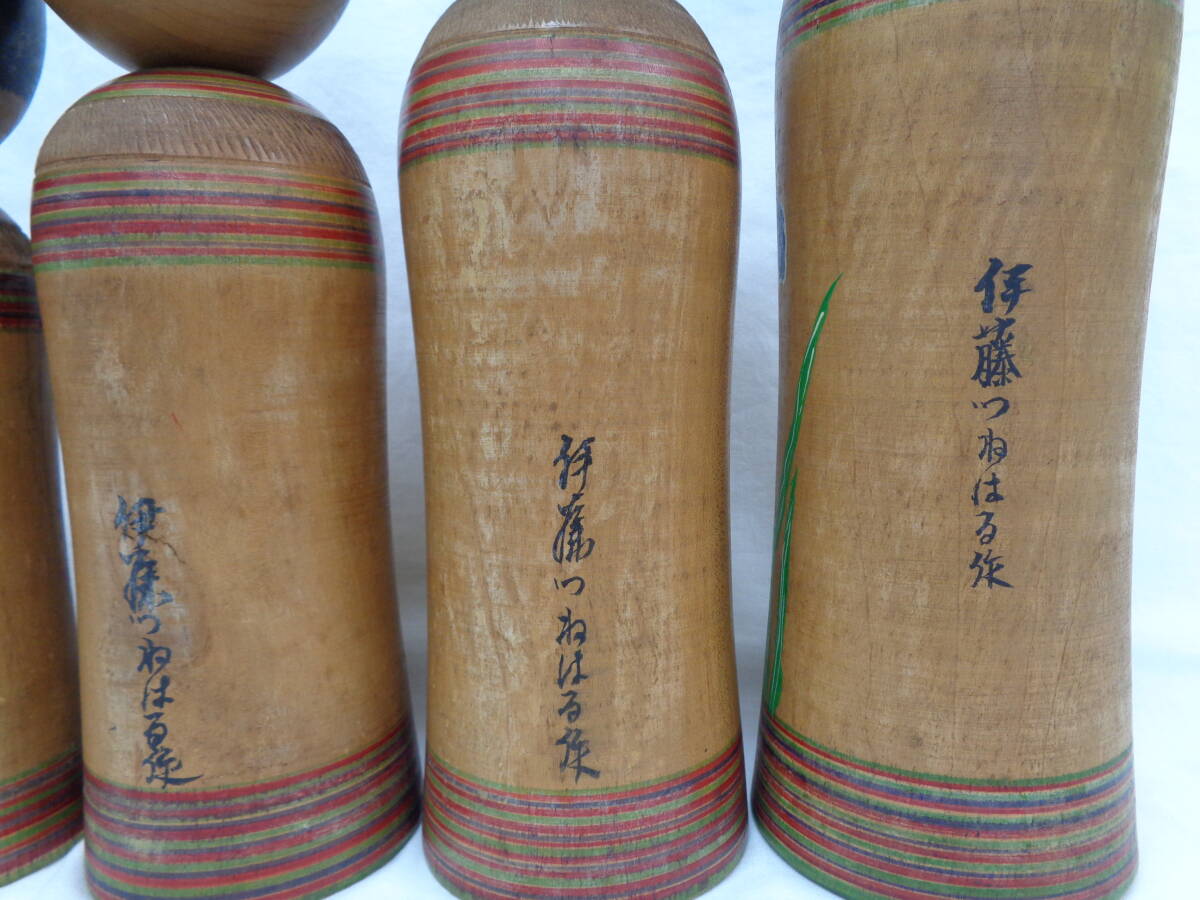 伊藤つねはる作
伊藤つねはる作
伊藤つねはる作